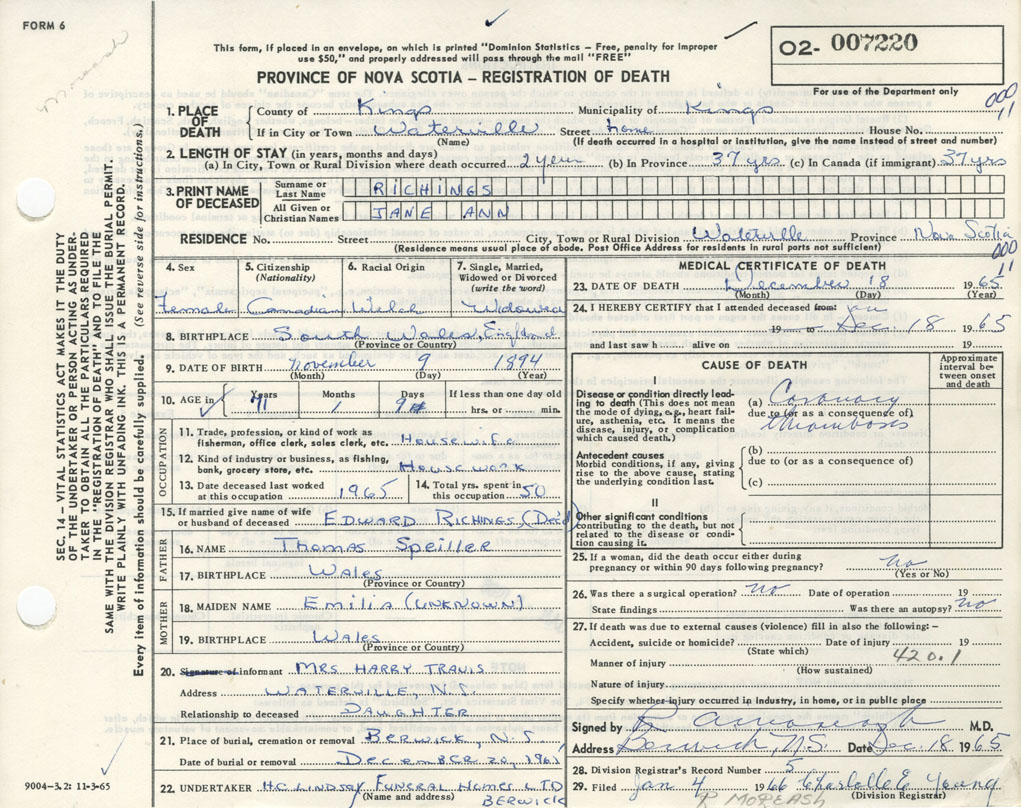 FORM 6
This form, if placed in an envelope, on which is printed "Dominion Statistics – Free, penalty for improper
use $50," and properly addressed will pass through the mail "FREE"
PROVINCE OF NOVA SCOTIA – REGISTRATION OF DEATH
02- 007220
For use of the Department only
1. PLACE OF DEATH County of Kings Municipality of Kings
If in City or Town Waterville Street home House No.
(Name) (If death occurred in a hospital or institution, give the name instead of street and number)
2. LENGTH OF STAY (in years, months and days)
(a) In City, Town or Rural Division where death occurred 2 year (b) In Province 37 yrs (c) In Canada (if immigrant) 37 yrs
3. PRINT NAME OF DECEASED
Surname or Last Name RICHINGS
All Given or Christian Names JANE ANN
RESIDENCE No. Street City, Town or Rural Division Waterville Province Nova Scotia
(Residence means usual place of abode, Post Office Address for residents in rural parts not sufficient)
SEC. 14 – VITAL STATISTICS ACT MAKES IT THE DUTY
OF THE UNDERTAKER OR PERSON ACTING AS UNDER-
TAKER TO OBTAIN ALL THE PARTICULARS REQUIRED
IN THE "REGISTRATION OF DEATH" AND TO FILE THE
SAME WITH THE DIVISION REGISTRAR WHO SHALL ISSUE THE BURIAL PERMIT.
WRITE PLAINLY WITH UNFADING INK. THIS IS A PERMANENT RECORD.
Every item of information should be carefully supplied. (See reverse side for instructions.)
4. Sex
Female
5. Citizenship
(Nationality)
Canadian
6. Racial Origin
Welch
7. Single, Married,
Widowed or Divorced
(write the word)
Widowed
8. BIRTHPLACE South Wales, England
(Province or Country)
9. DATE OF BIRTH November 9 1894
(Month) (Day) (Year)
10. AGE in Years Months Days If less than one day old
71 1 9 hrs. or min.
OCCUPATION
11. Trade, profession, or kind of work as
fisherman, office clerk, sales clerk, etc. Housewife
12. Kind of industry or business, as fishing,
bank, grocery store, etc. House work
13. Date deceased last worked
at this occupation 1965
14. Total yrs. spent in
this occupation 50
15. If married give name of wife
or husband of deceased EDWARD RICHINGS (Dec'd)
FATHER
16. NAME Thomas Speiller
17. BIRTHPLACE Wales
(Province or Country)
MOTHER
18. MAIDEN NAME Emilia (UNKNOWN)
19. BIRTHPLACE Wales
(Province or Country)
20. Signature of informant MRS HARRY TRAVIS
Address WATERVILLE, N.S.
Relationship to deceased DAUGHTER
21. Place of burial, cremation or removal BERWICK, N.S.
Date of burial or removal December 20, 1961
22. UNDERTAKER H.C. LINDSAY FUNERAL HOMES LTD
(Name and address) BERWICK
9004-3.2: 11-3-65
MEDICAL CERTIFICATE OF DEATH
23. DATE OF DEATH December 18 1965
(Month) (Day) (Year)
24. I HEREBY CERTIFY that I attended deceased from:
19 to Dec. 18 1965
and last saw h alive on 19
CAUSE OF DEATH
Approximate
interval be-
tween onset
and death
I
Disease or condition directly lead-
ing to death (This does not mean
the mode of dying, e.g., heart fail-
ure, asthenia, etc. it means the
disease, injury, or complication
which caused death.)
(a) Coronary
due to (or as a consequence of)
thrombosis
Antecedent causes
Morbid conditions, if any, giving
rise to the above cause, stating
the underlying condition last.
(b)
due to (or as a consequence of)
(c)
II
Other significant conditions
contributing to the death, but not
related to the disease or condi-
tion causing it.
25. If a woman, did the death occur either during
pregnancy or within 90 days following pregnancy? no
(Yes or No)
26. Was there a surgical operation? no Date of operation 19
State findings Was there an autopsy? no
27. If death was due to external causes (violence) fill in also the following: –
Accident, suicide or homicide? Date of injury 19
(State which)
Manner of injury 420.1
(How sustained)
Nature of injury
Specify whether injury occurred in industry, in home, or in public place
Signed by M.D.
Address Berwick, N.S. Date Dec. 18 1965
28. Division Registrar's Record Number 5
29. Filed Jan 4 1966 Charlotte E Young
(Division Registrar)
R MOREASH